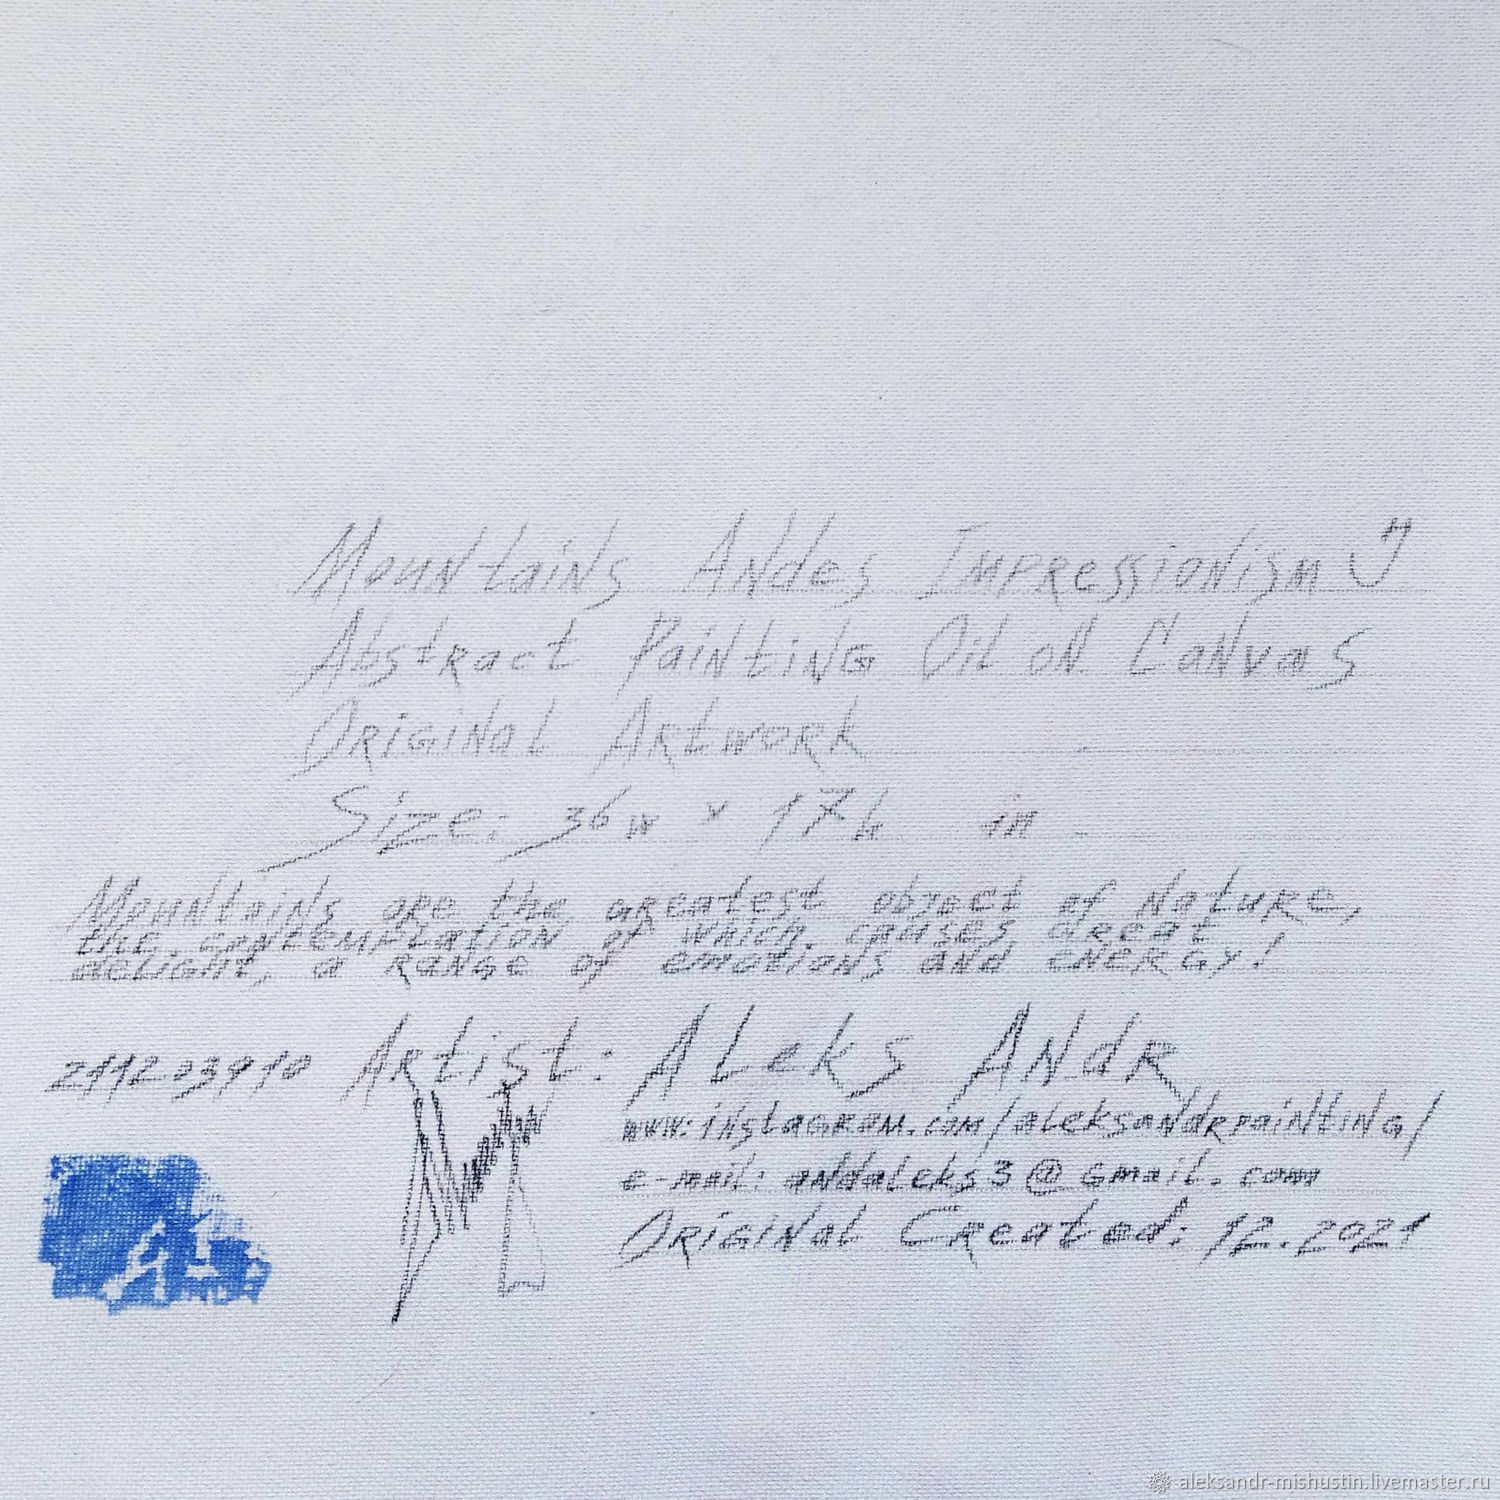 Mountains Andes Impressionism
Abstract Painting Oil on Canvas
Original Artwork
Size: 36w x 17h in
Mountains are the greatest object of Nature,
the contemplation of which causes great
delight, a range of emotions and energy!
211203910 Artist: Aleks Andr
www.instagram.com/aleksandrpainting/
e-mail: andaleks3@gmail.com
Original Created: 12.2021
aleksandr-mishustin.livemaster.ru